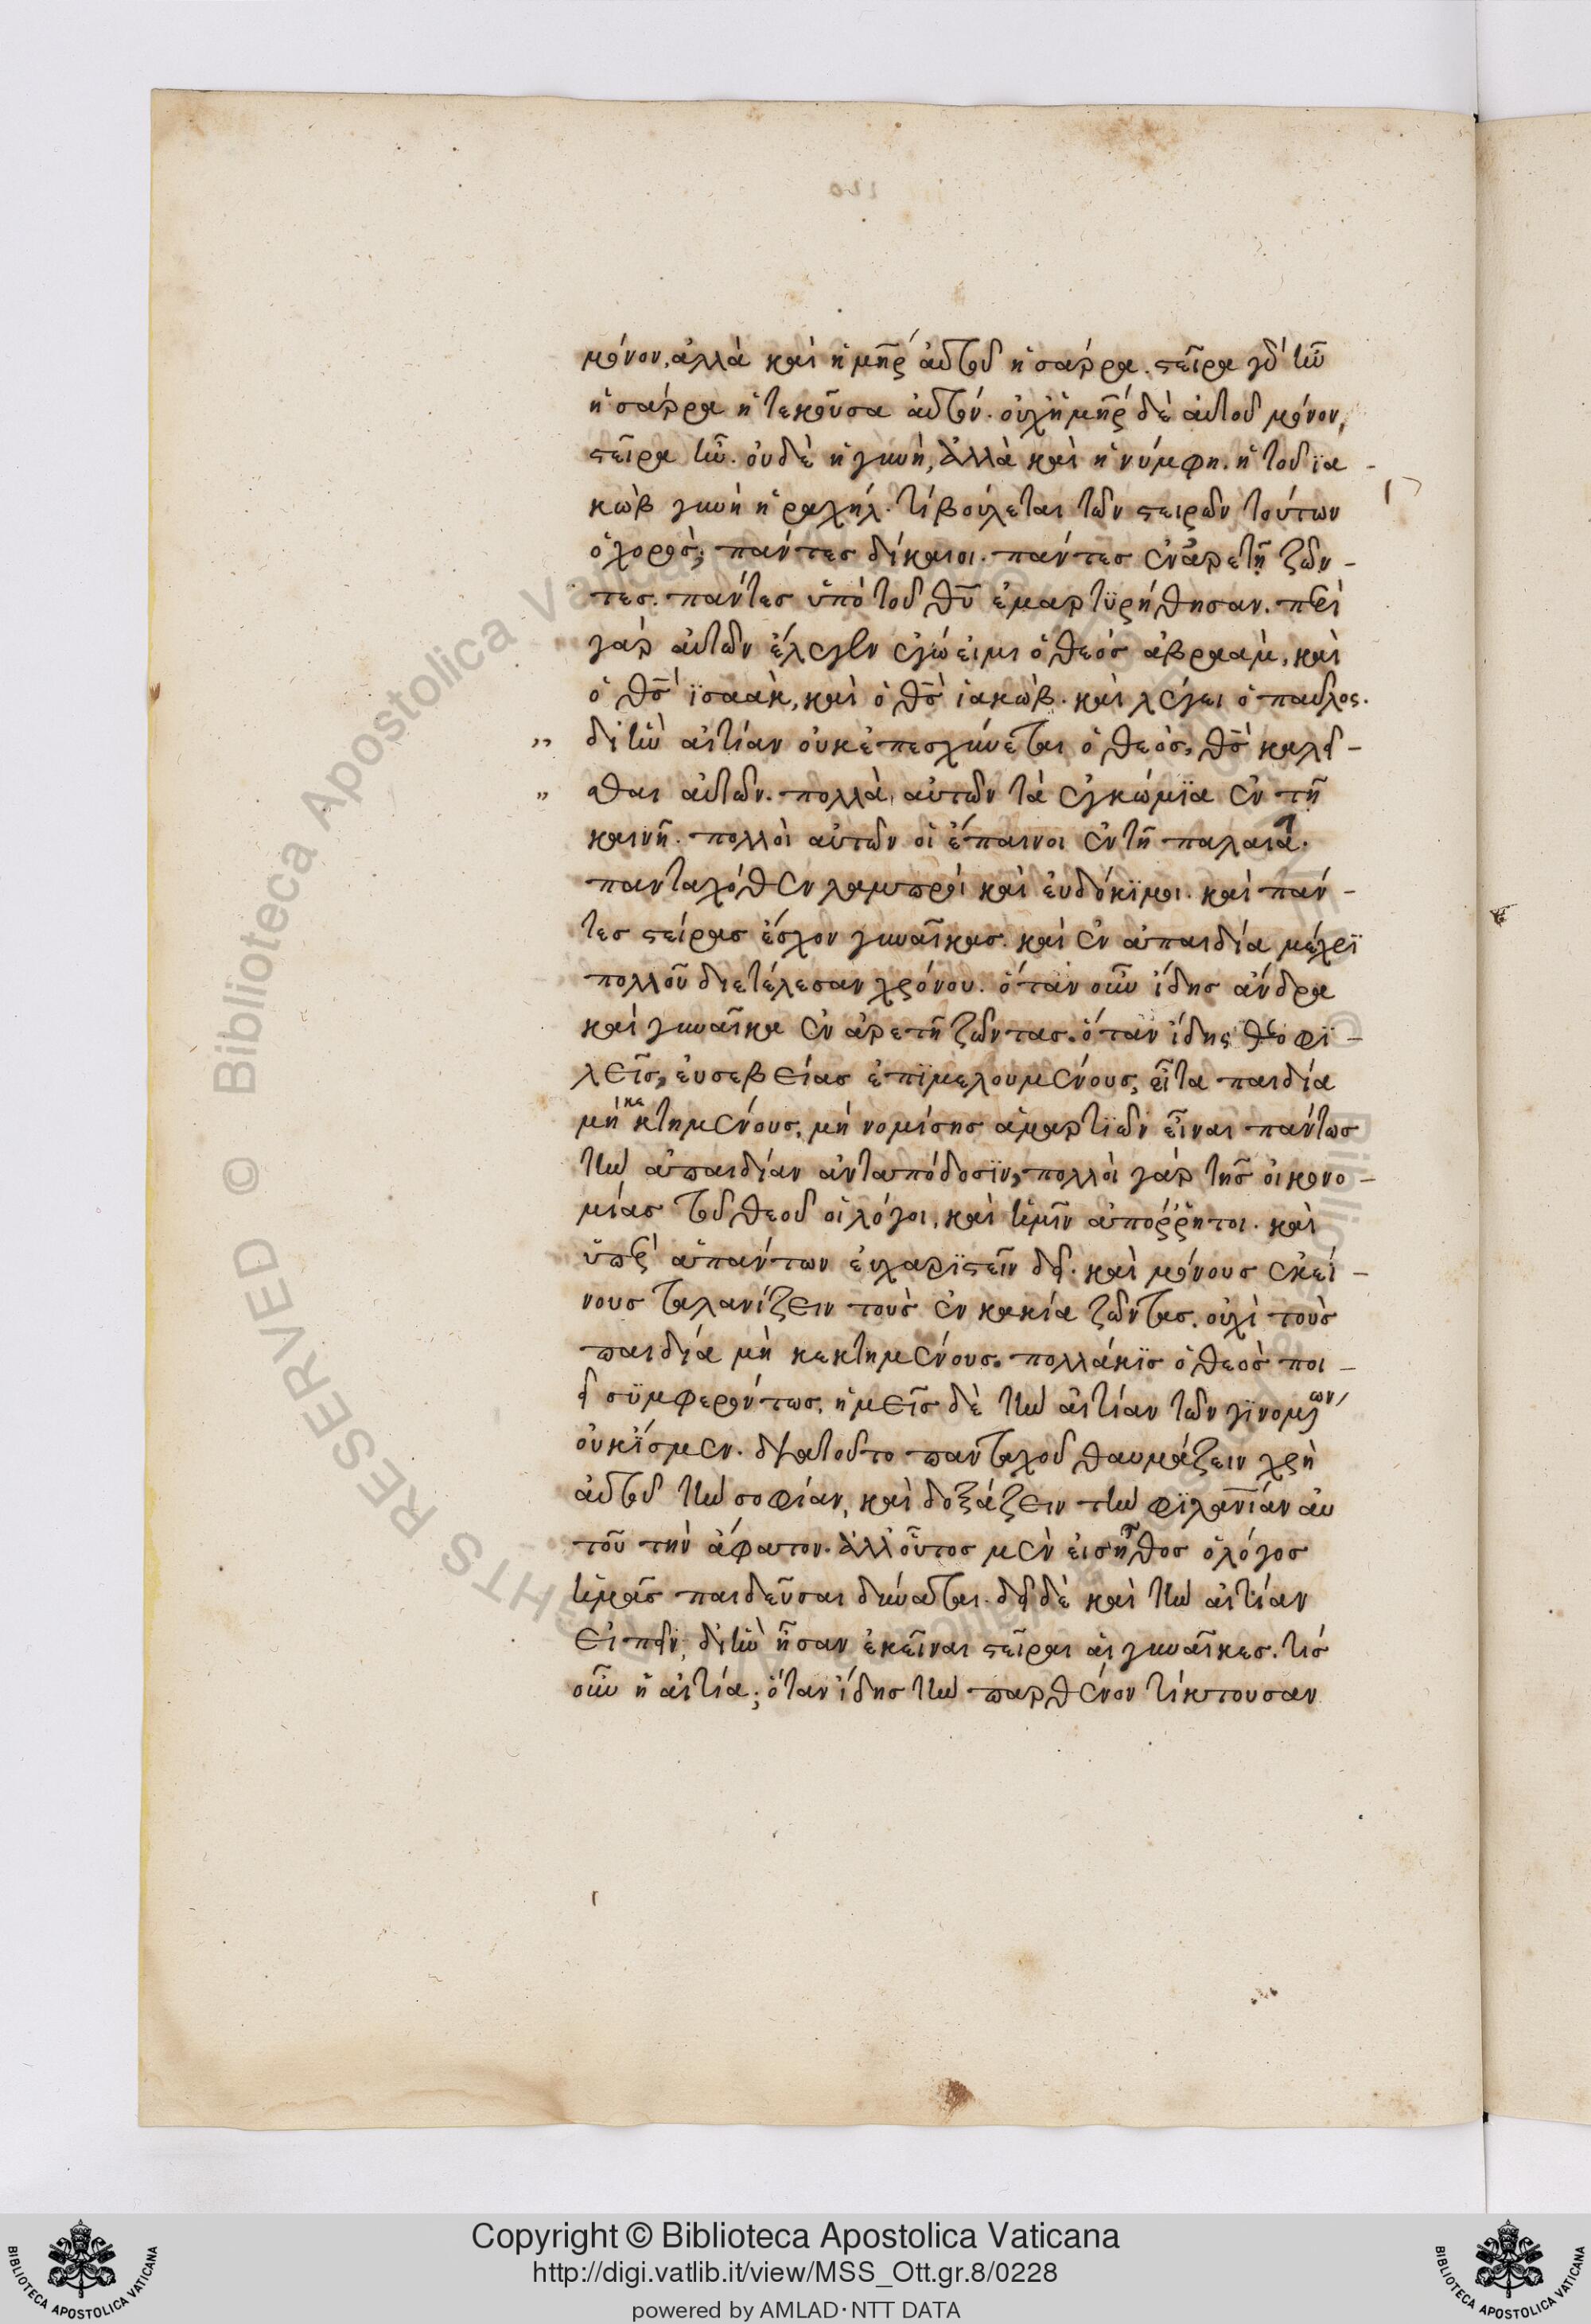 μόνον, ἀλλὰ καὶ ἡ μηρ αὐτοῦ ἡ σάρρα. στεῖρα γὰρ ἦν
ἡ σάρρα ἡ τεκοῦσα αὐτόν. οὐχ ἡ μηρ δὲ αὐτοῦ μόνον,
στεῖρα ἦν. οὐδὲ ἡ γυνὴ, ἀλλὰ καὶ ἡ νύμφη. ἡ τοῦ ϊα -
κὼβ γυνὴ ἡ ραχήλ. τί βούλεται τῶν στειρῶν τούτων
ὁ χορὸς; πάντες δίκαιοι. πάντες ἐν ἀρετῇ ζῶν -
τες. πάντες ὑπὸ τοῦ θυ ἐμαρτϋρήθησαν. περὶ
γὰρ αὐτῶν ἔλεγεν ἐγώ εἰμι ὁ θεὸς ἀβραάμ, καὶ
ὁ θς ϊσαὰκ, καὶ ὁ θς ἰακώβ. καὶ λέγει ὁ παῦλος.
„ δι ἣν αἰτίαν οὐκ ἐπεσχύνεται ὁ θεὸς, θς καλεῖ -
„ σθαι αὐτῶν. πολλὰ αὐτῶν τὰ ἐγκώμϊα ἐν τῇ
καινῇ. πολλοὶ αὐτῶν οἱ ἔπαινοι ἐν τῇ παλαιᾷ.
πανταχόθεν λαμπροὶ καὶ εὐδόκϊμοι. καὶ πάν -
τες στείρας ἔσχον γυναῖκας. καὶ ἐν ἀπαιδία μέχρϊ
πολλοῦ διετέλεσαν χρόνου. ὅταν οὖν ἴδης ἄνδρα
καὶ γυναῖκα ἐν ἀρετῇ ζῶντας. ὅταν ἴδης θεοφϊ -
λεῖς, εὐσεβείας ἐπϊμελουμένους, εἶτα παιδία
μὴ κεκτημένους, μὴ νομίσης ἁμαρτϊῶν εἶναι πάντως
τὴν ἀπαιδίαν ἀνταπόδοσϊν, πολλοὶ γὰρ τῆς οἰκονο -
μίας τοῦ θεοῦ οἱ λόγοι, καὶ ἡμῖν ἀπόρρητοι. καὶ
ὑπὲρ ἁπάντων εὐχαρϊστεῖν δεῖ. καὶ μόνους ἐκεί -
νους ταλανίζειν τοὺς ἐν κακία ζῶντας. οὐχὶ τοὺς
παιδία μὴ κεκτημένους. πολλάκϊς ὁ θεὸς ποι -
εῖ σϋμφερόντως. ἡμεῖς δὲ τὴν αἰτίαν τῶν γϊνομένων
οὐκ ἴσμεν. διατοῦτο πανταχοῦ θαυμάζειν χρὴ
αὐτοῦ τὴν σοφίαν, καὶ δοξάζειν τὴν φϊλανίαν αὐ
τοῦ τὴν ἄφατον. ἀλλ οὗτος μὲν εἰς ἦθος ὁ λόγος
ἡμᾶς παιδεῦσαι δύναται. δεῖ δὲ καὶ τὴν αἰτίαν
εἰπεῖν, δι ἣν ἦσαν ἐκεῖναι στεῖραι αἱ γυναῖκες. τίς
οὖν ἡ αἰτία; ὅταν ἴδης τὴν παρθένον τίκτουσαν
Copyright © Biblioteca Apostolica Vaticana
http://digi.vatlib.it/view/MSS_Ott.gr.8/0228
powered by AMLAD·NTT DATA